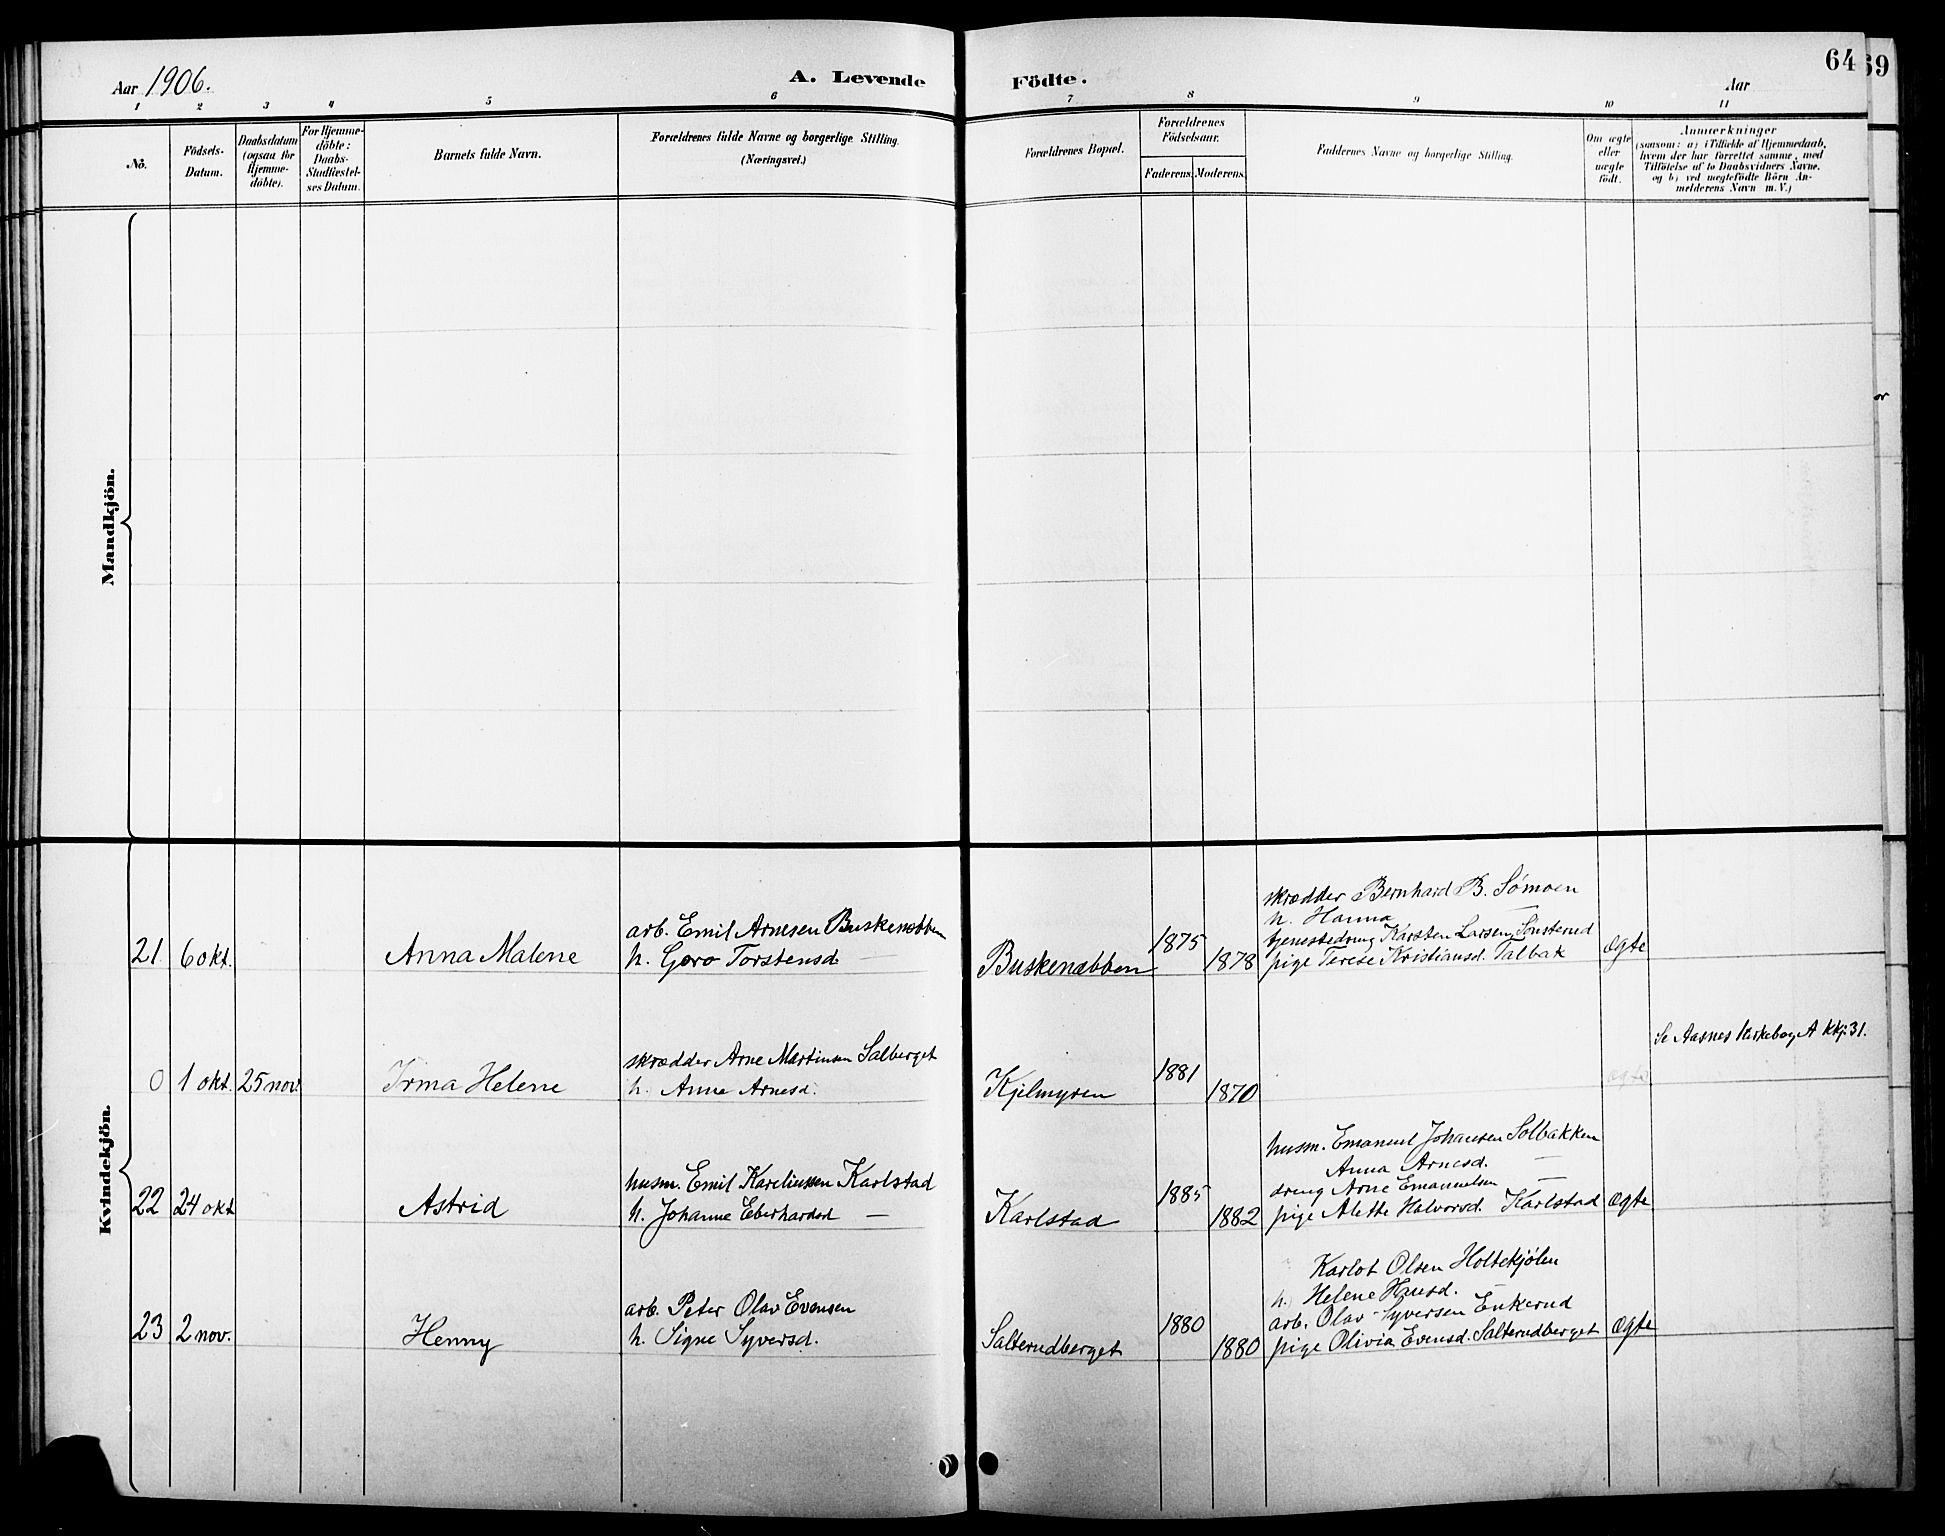 Aar 1906.
A. Levende Födte.
Aar
64
69
1 2 3 4 5 6 7 8 9 10 11
No.
Födsels-
Datum.
Daabsdatum
(ogsaa for
Hjemme-
döbte).
For Hjemme-
döbte:
Daabs-
Stadfæstel-
ses Datum.
Barnets fulde Navn.
Forældrenes fulde Navne og borgerlige Stilling.
(Næringsvei.)
Forældrenes Bopæl.
Forældrenes
Födselsaar.
Faderens. Moderens.
Faddernes Navne og borgerlige Stilling.
Om ægte
eller
uægte
födt.
Anmærkninger
(saasom: a) i Tilfælde af Hjemmedaab,
hvem der har forrettet samme, med
Tilföielse af to Daabsvidners Navne.
og b) ved uægtefödte Börn An-
melderens Navn m. V.)
Mandkjön.
or
Kvindekjön.
21 6 okt.
Anna Malene
arb. Emil Arnesen Buskenæbben
h. Goro Torstensd —
Buskenæbben
1875
1878
skrædder Bernhard B. Sømoen
h. Hanna —
tjenestedreng Karsten Larsen Sønsterud
pige Terese Kristiansd. Talbak
ægte
0 1 okt. 25 nov.
Irma Helene
skrædder Arne Martinsen Salberget
h. Anne Arnesd.
Kjelmyren
1881
1870
ægte
Se Aasnes kirkebog A kkp: 31.
22 24 okt
Astrid
husm. Emil Kareliussen Karlstad
h. Johanne Eberhardsd —
Karlstad
1885
1882
husm. Emanuel Johansen Solbakken
Anna Arnesd. —
dreng Arne Emanuelsen —
pige Alette Halvorsd. Karlstad
ægte
23 2 nov.
Henny
arb. Peter Olav Evensen
h. Signe Syversd.
Salterudberget
1880
1880
Karlot Olsen Holtekjølen
h. Helene Hansd. —
arb. Olav Syversen Enkerud
pige Olivia Evensd. Salterudberget
ægte